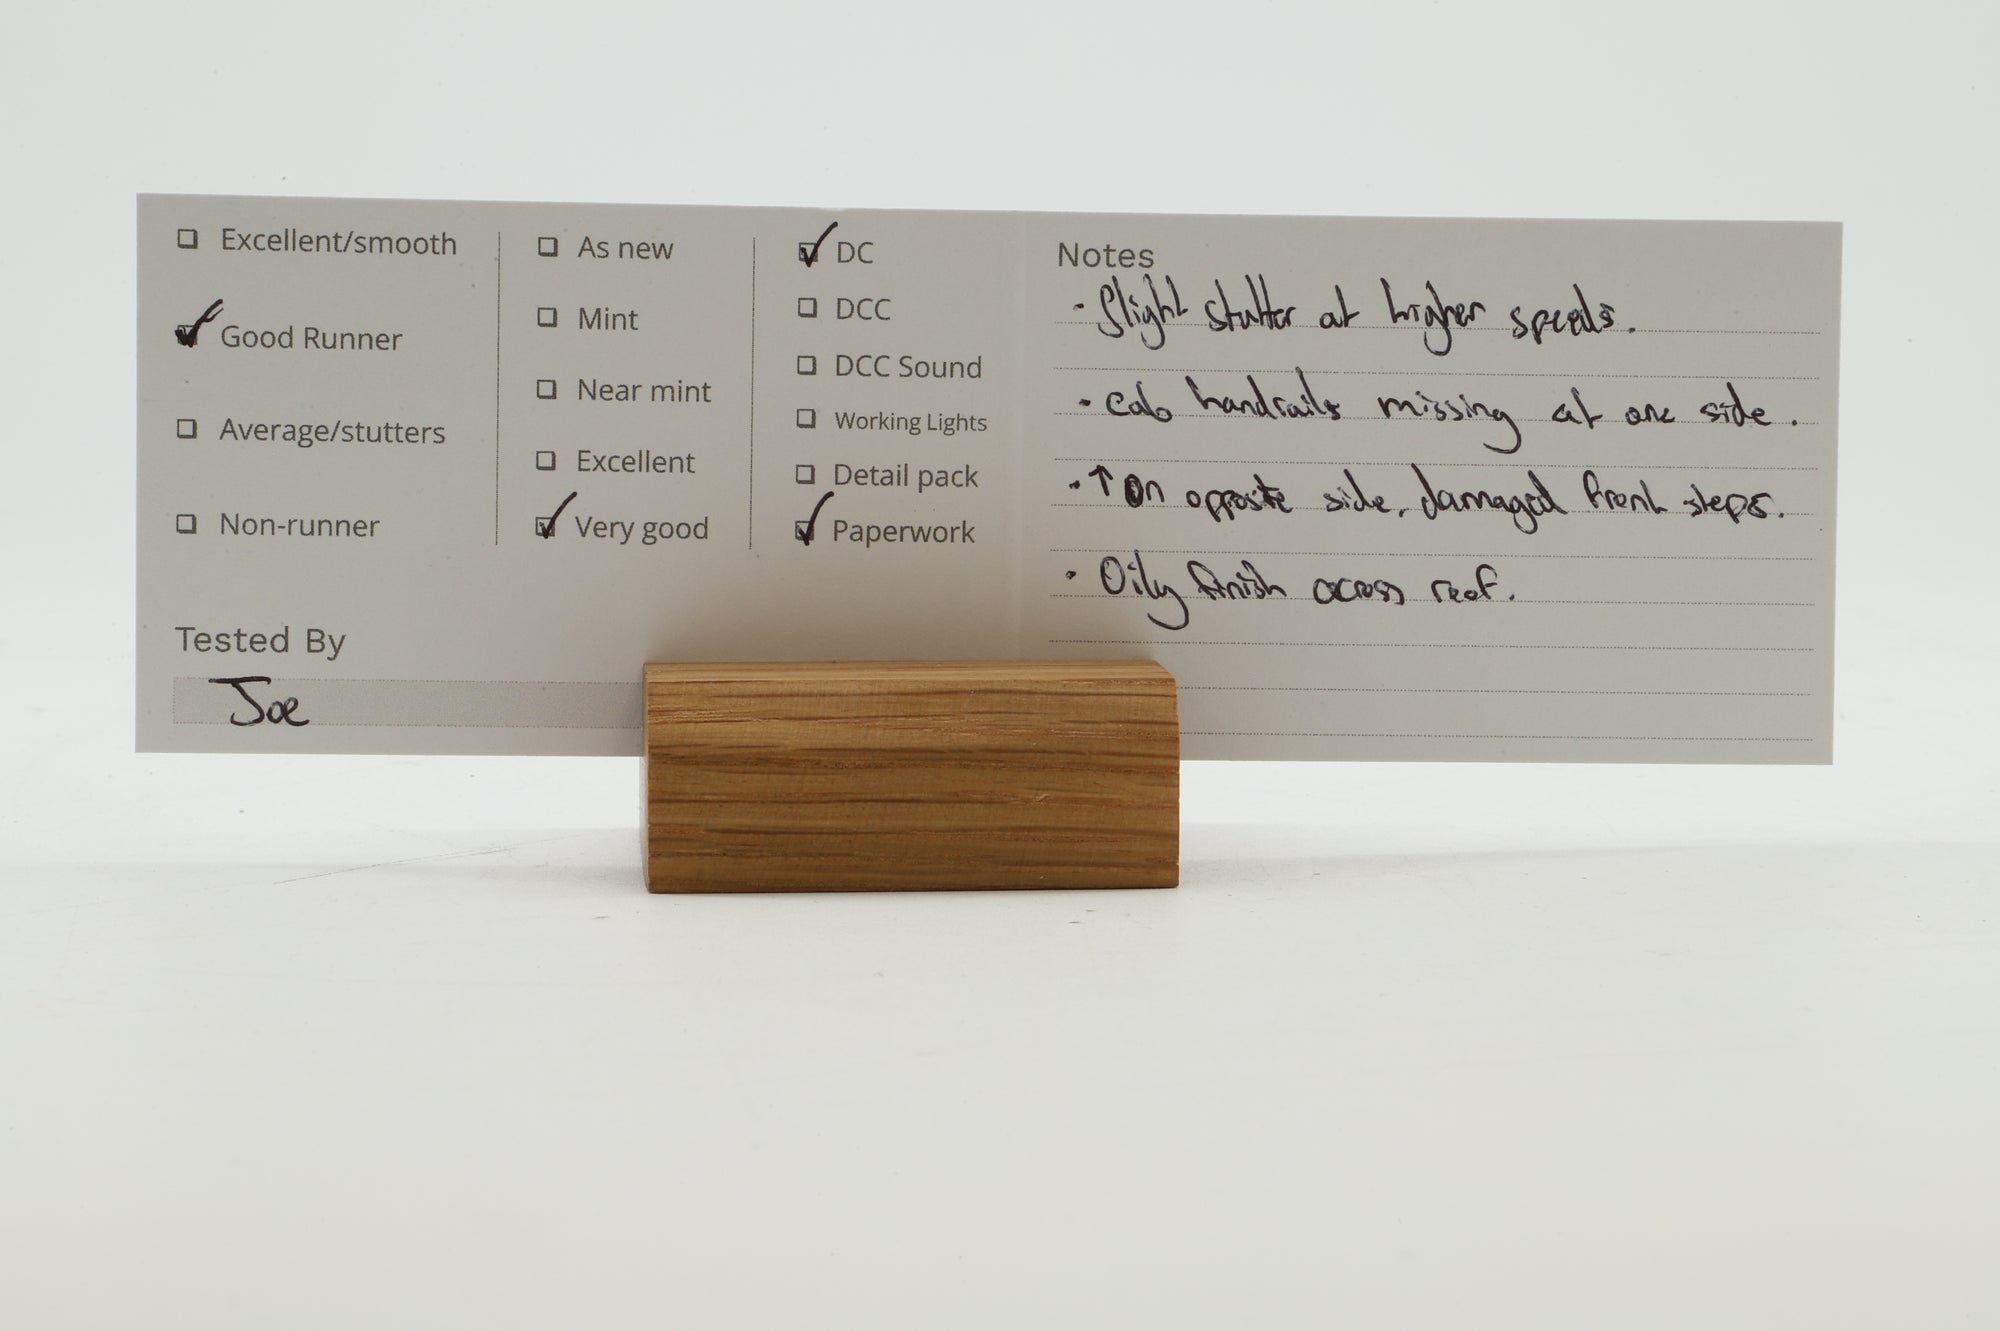 Excellent/smooth
Good Runner
Average/stutters
Non-runner
Tested By
Joe
As new
Mint
Near mint
Excellent
Very good
DC
DCC
DCC Sound
Working Lights
Detail pack
Paperwork
Notes
- Slight stutter at higher speeds.
- cab handrails missing at one side.
- ↑ On opposite side, damaged front steps.
- Oily finish across roof.